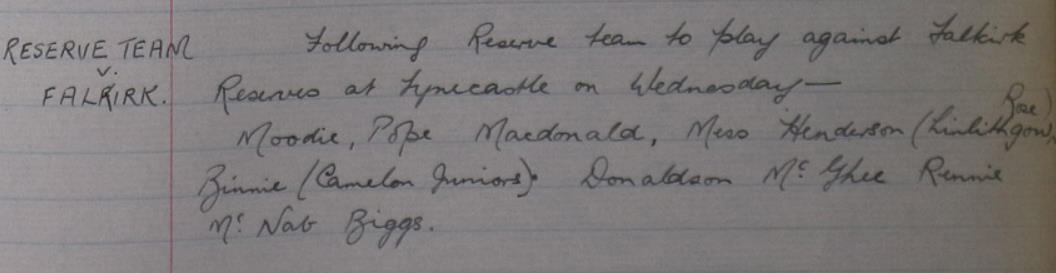 RESERVE TEAM
v.
FALKIRK.
Following Reserve team to play against Falkirk
Reserves at Tynecastle on Wednesday—
Moodie, Pope Macdonald, Henderson (Linlithgow Rose)
Binnie (Camelon Juniors). Donaldson McGhee Rennie
McNab Biggs.